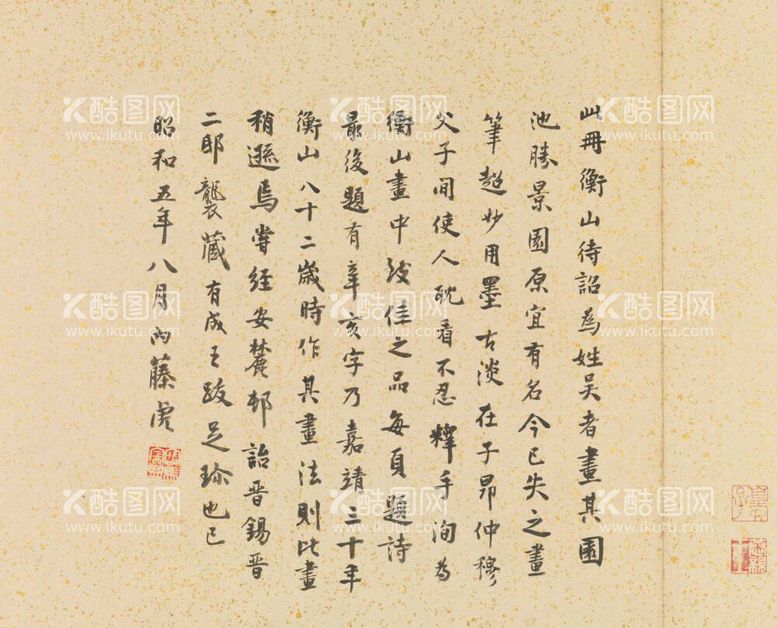 此冊衡山待詔為姓吳者畫其園
池勝景園原宜有名今已失之畫
筆超妙用墨古淡在子昂仲穆
父子間使人耽看不忍釋手洵為
衡山畫中絕佳之品每頁題詩
最後題有辛亥字乃嘉靖三十年
衡山八十二歲時作其畫法則比畫
稍遜焉嘗經安麓邨詒晋錫晋
二邸襲藏有成王跋足珍也已
昭和五年八月内藤虎
K酷图网
www.ikutu.com